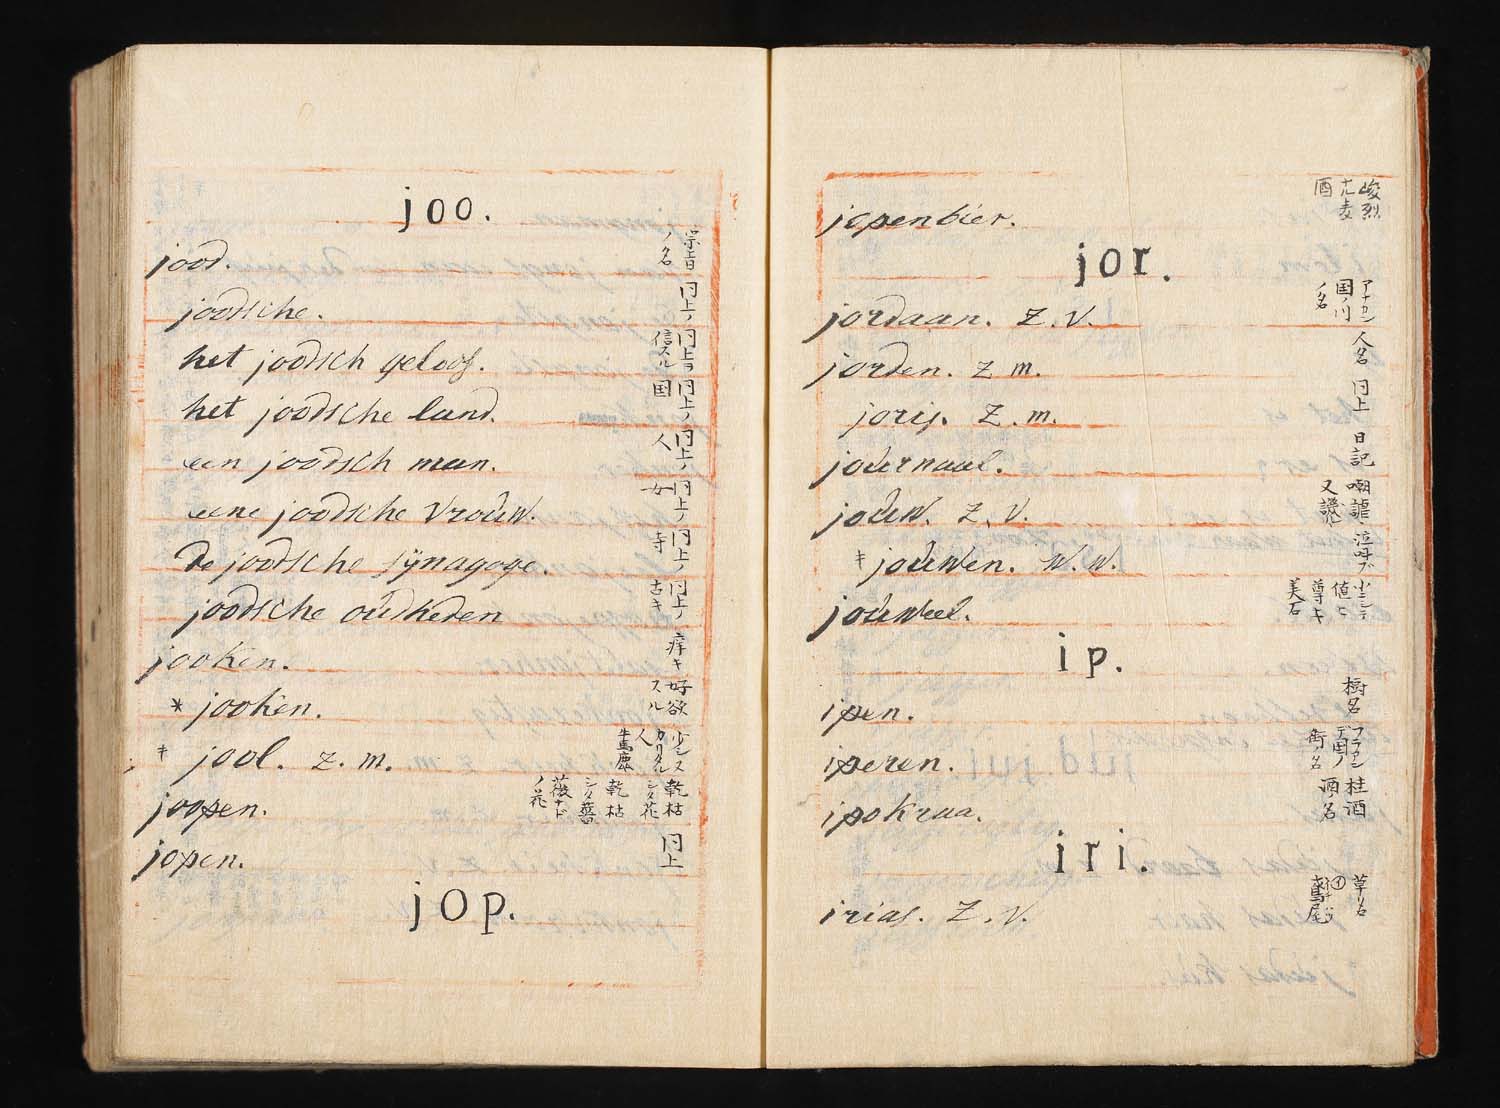 joo.
jood. 宗旨ノ名
joodsche. 同上ノ
het joodsch geloof. 同上ヲ信スル
het joodsche land. 同上ノ国
een joodsch man. 同上ノ人
eene joodsche vrouw. 同上ノ女
de joodsche sÿnagoge. 同上ノ寺
joodsche oudheden 同上ノ古キ
jooken. 痒キ
* jooken. 好欲スル
ǂ jool. z. m. 人 馬鹿
joopen. 乾枯シタ花 乾枯シタ薔薇ナドノ花
jopen. 同上
jop.
jopenbier. 峻烈ナル麦酒
jor.
jordaan. z. v. 国ノ川ノ名
jorden. z m. 人名
joris. z. m. 同上
journaal. 日記
jouw. z. v. 嘲謔 又譏
ǂ jouwen. w. w. 泣呼ブ
jouweel. 小ニシテ値ヒ尊キ美石
ip.
ipen. 樹名
iperen. 国ノ街ノ名
ipokraa. 桂酒 酒名
iri.
irias. z. v. 草ノ名 鳶尾